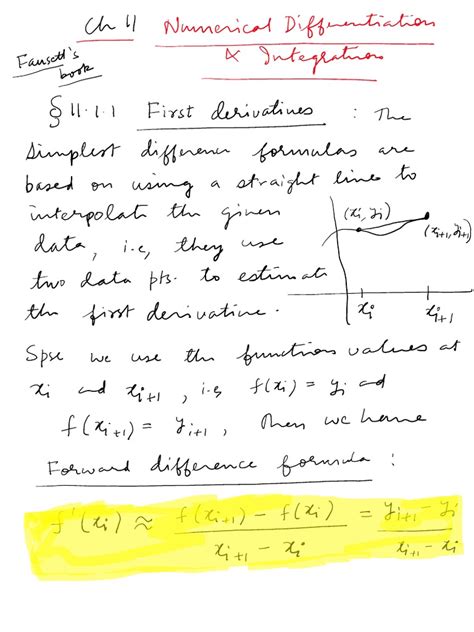 Ch 11 Numerical Differentiation
& Integration
Fausett's
book
§ 11.1.1 First derivatives : The
simplest difference formulas are
based on using a straight line to
interpolate the given
data, i.e, they use
two data pts. to estimate
the first derivative.
(xi, yi)
(xi+1, yi+1)
xi
xi+1
Spse we use the function values at
xi and xi+1, i.e f(xi) = yi and
f(xi+1) = yi+1, then we have
Forward difference formula :
f'(xi) ≈ f(xi+1) - f(xi) / xi+1 - xi = yi+1 - yi / xi+1 - xi